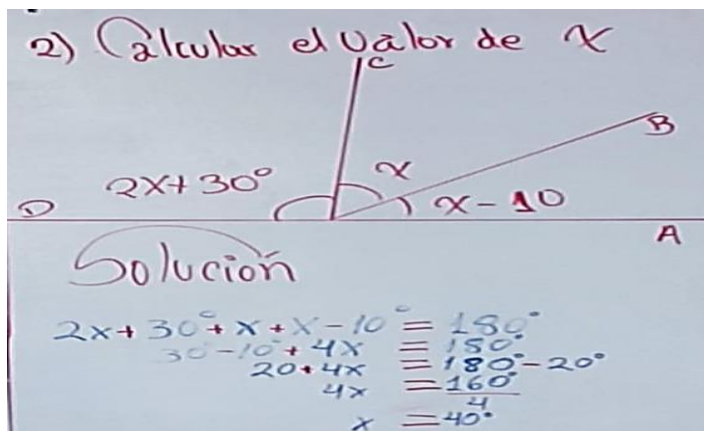 2) Calcular el valor de x
C
B
x
2x+30°
x-10
D
A
Solución
2x+30°+x+x-10° = 180°
30-10+4x = 180°
20+4x = 180°-20°
4x = 160°
4
x = 40°